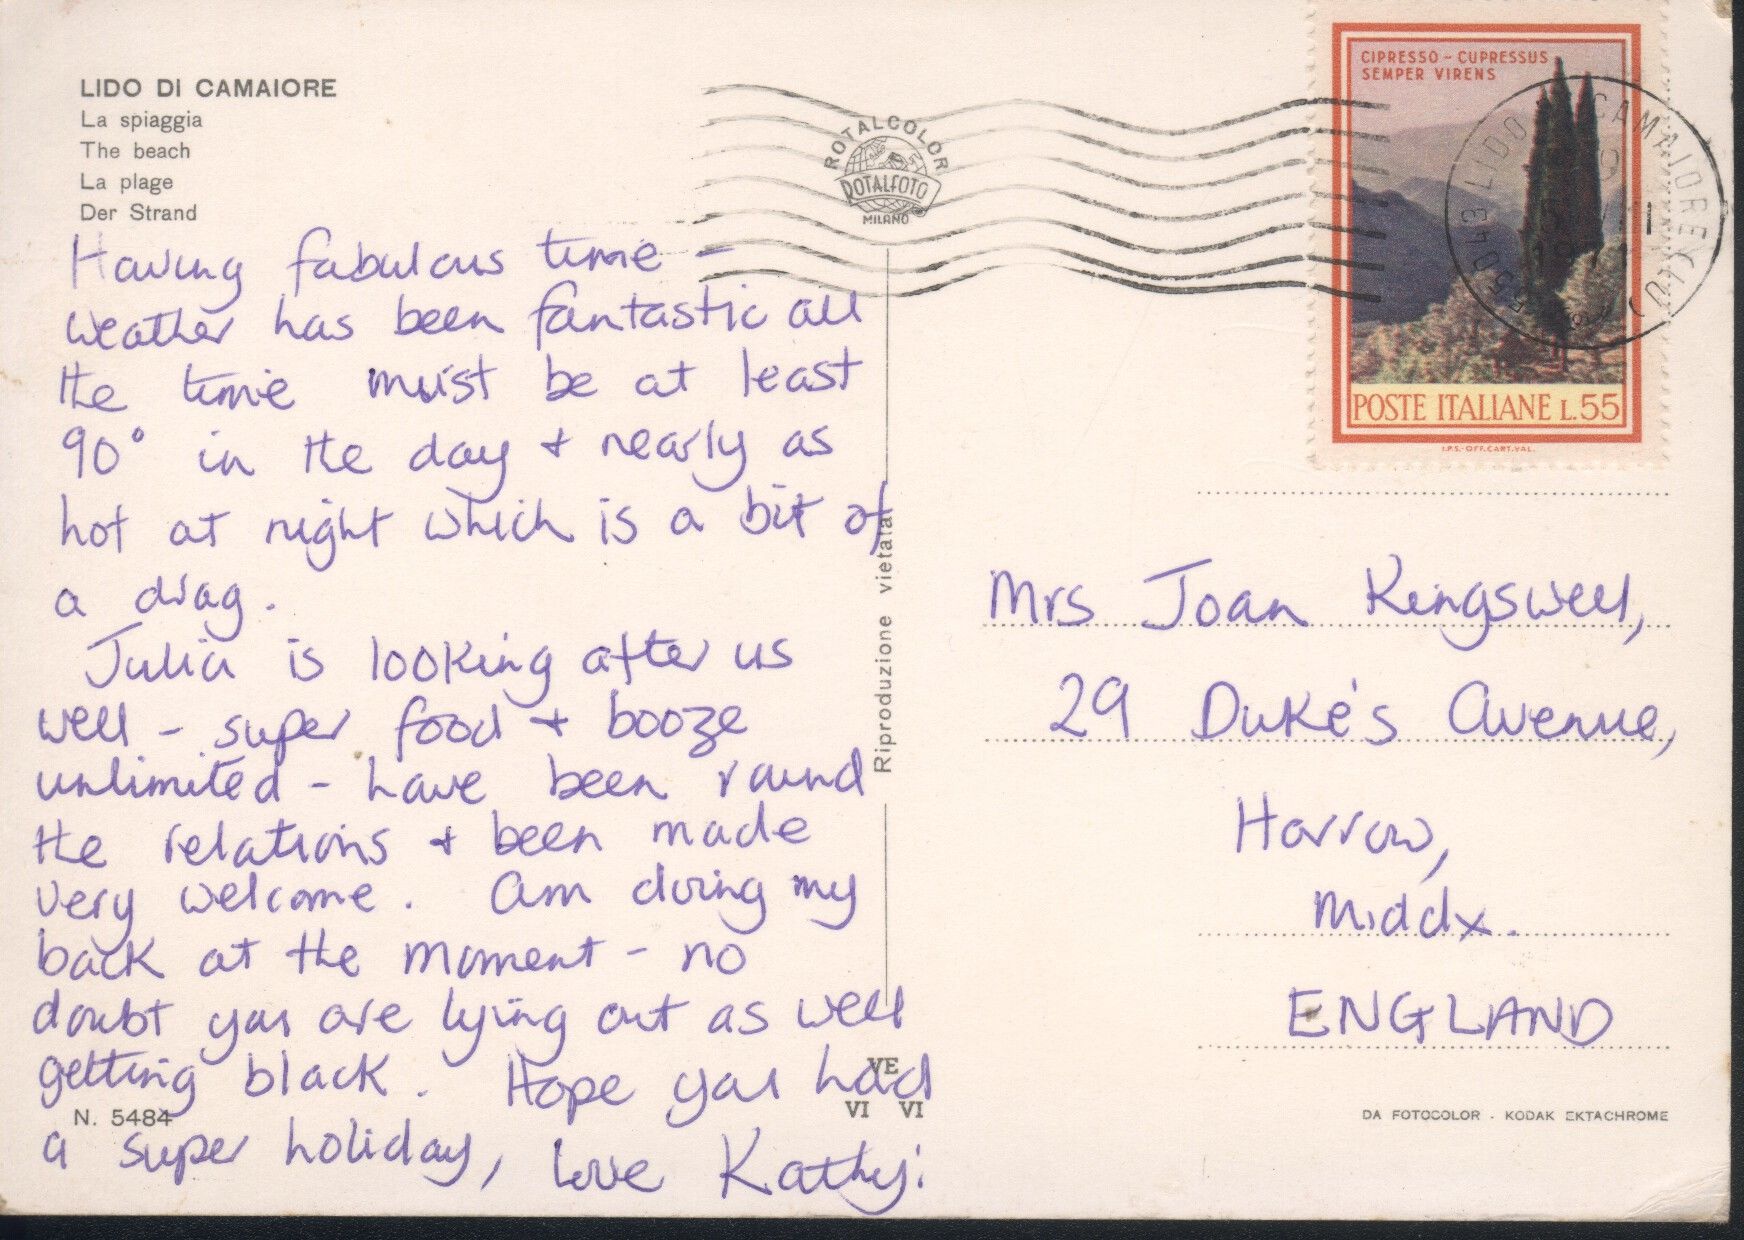 LIDO DI CAMAIORE
La spiaggia
The beach
La plage
Der Strand
Having fabulous time -
weather has been fantastic all
the time must be at least
90° in the day + nearly as
hot at night which is a bit of
a drag.
Julia is looking after us
well - super food + booze
unlimited - have been round
the relations + been made
very welcome. Am doing my
back at the moment - no
doubt you are lying out as well
getting black. Hope you had
a super holiday, Love Kathy.
N. 5484
ROTALCOLOR
ROTALFOTO
MILANO
Riproduzione vietata
VE
VI VI
CIPRESSO - CUPRESSUS
SEMPER VIRENS
POSTE ITALIANE L.55
I.P.S.-OFF.CART.VAL.
55043 LIDO CAMAIORE (LU)
Mrs Joan Kingswell,
29 Duke's Avenue,
Harrow,
Middx.
ENGLAND
DA FOTOCOLOR - KODAK EKTACHROME